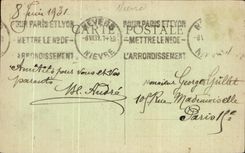 8 Juin 1931
NEVERS
NIEVRE
POUR PARIS ET LYON
METTRE LE No DE
L'ARRONDISSEMENT
POUR PARIS ET LYON
METTRE LE No DE
L'ARRONDISSEMENT
CARTE POSTALE
Amitiés pour vous et vos
parents
Monsieur Georges
10 Rue Mademoiselle
Paris 15e